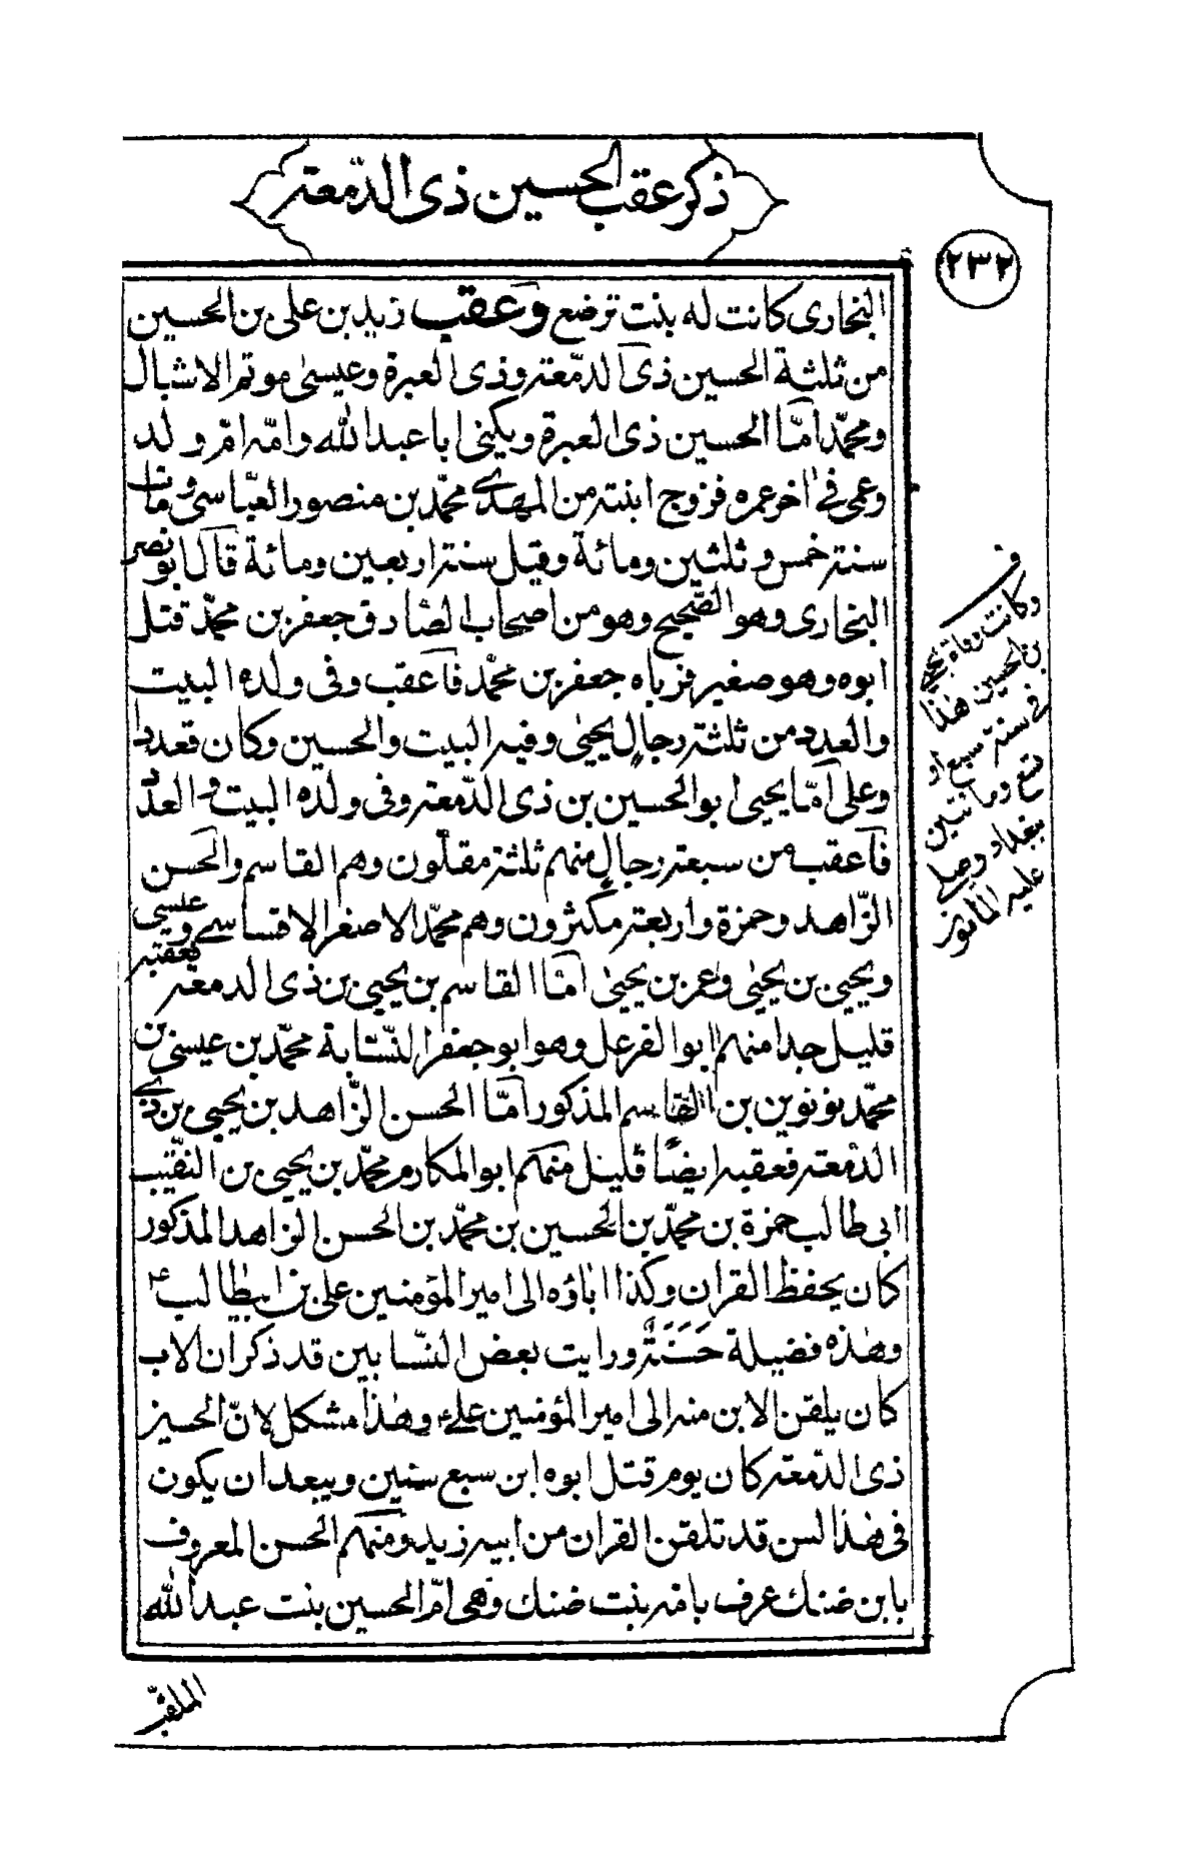 ذكر عقب الحسين ذى الدّمعة
٢٣٢
البخارى كانت له بنت ترضع وعقب زيد بن على بن الحسين
من ثلثة الحسين ذى الدّمعة وذى العبرة وعيسى موتم الاشبال
ومحمّد امّا الحسين ذى العبرة ويكنى ابا عبد الله وامّه امّ ولد
وعمى فى اخر عمره فزوج ابنته من المهدى محمّد بن منصور العبّاسى ومات
سنة خمس و ثلثين ومائة وقيل سنة اربعين ومائة قال ابو نصر
البخارى وهو الصّحيح وهو من اصحاب الصّادق جعفر بن محمّد قتل
ابوه وهو صغير فرباه جعفر بن محمّد فاعقب وفى ولده البيت
والعدد من ثلثة رجال يحيى وفيه البيت والحسين وكان قعددا
وعلى امّا يحيى ابو الحسين بن ذى الدّمعة وفى ولده البيت و العدد
فاعقب من سبعة رجال منهم ثلثة مقلّون وهم القاسم والحسن
الزّاهد وحمزة واربعة مكثرون وهم محمّد الاصغر الاقساسى وعيسى
ويحيى بن يحيى وعمر بن يحيى امّا القاسم بن يحيى بن ذى الدمعة فعقبه
قليل جدا منهم ابو الفرعل وهو ابو جعفر النّسّابة محمّد بن عيسى بن
محمّد نونوين بن القاسم المذكور امّا الحسن الزّاهد بن يحيى بن ذى
الدّمعة فعقبه ايضًا قليل منهم ابو المكارم محمّد بن يحيى بن النقيب
ابى طالب حمزة بن محمّد بن الحسين بن محمّد بن الحسن الزاهد المذكور
كان يحفظ القران وكذا اباؤه الى امير المؤمنين على بن ابيطالب ع
وهذه فضيلة حَسَنَةٌ ورايت بعض النسّابين قد ذكر ان الاب
كان يلقن الابن منه الى امير المؤمنين علىّ ع وهذا مشكل لانّ الحسين
ذى الدّمعة كان يوم قتل ابوه ابن سبع سنين ويبعد ان يكون
فى هذا السن قد تلقن القران من ابيه زيد ومنهم الحسن المعروف
بابن ضنك عرف بامّه بنت ضنك وهى امّ الحسين بنت عبد الله
الملقّب
وكانت وفاة يحيى
بن الحسين هذا
فى سنة سبع او
تسع ومائتين
ببغداد وصلى
عليه المأمون